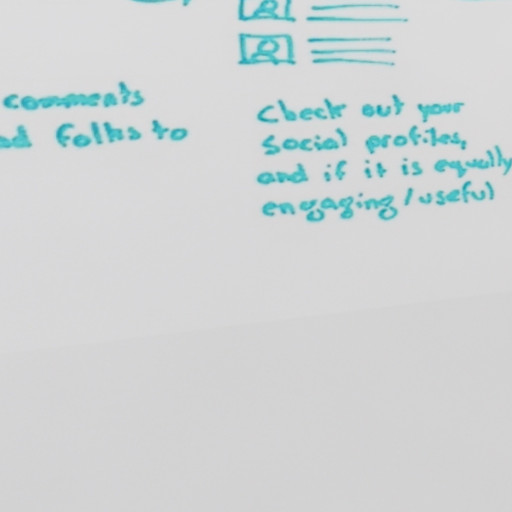 comments
folks to
Check out your
social profiles,
and if it is equally
engaging/useful